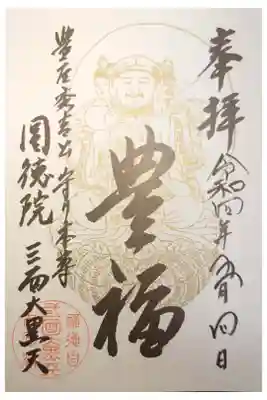 奉拝
令和四年五月四日
豊福
豊臣秀吉出世守本尊
三面大黒天
圓徳院